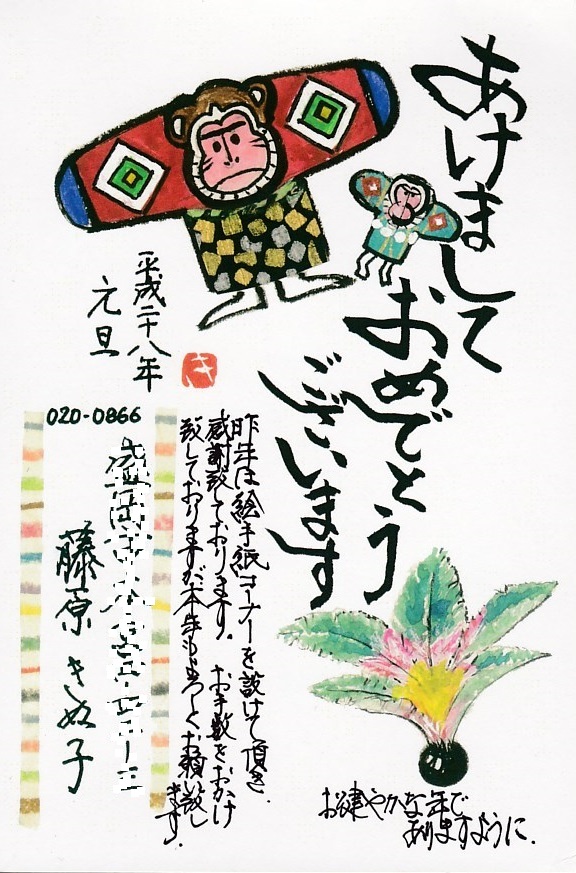 あけまして
おめでとう
ございます
平成二十八年
元旦
き
昨年は絵手紙コーナーを設けて頂き、
感謝致しております。お手数をおかけ
致しておりますが本年もよろしくお願い致し
ます。
お健やかな年で
ありますように。
020-0866
盛岡市
藤原きぬ子